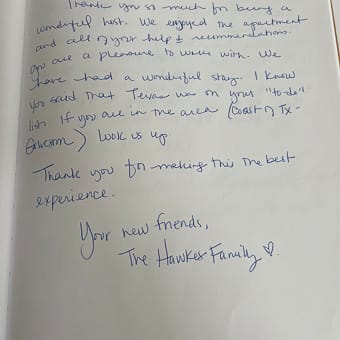 Thank you so much for being a
wonderful host. We enjoyed the apartment
and all of your help & recommendations.
You are a pleasure to work with. We
have had a wonderful stay. I know
you said that Texas was on your "to-do"
list. If you are in the area (Coast of Tx -
Galveston) look us up.
Thank you for making this the best
experience.
Your new friends,
The Hawkes Family ♡.